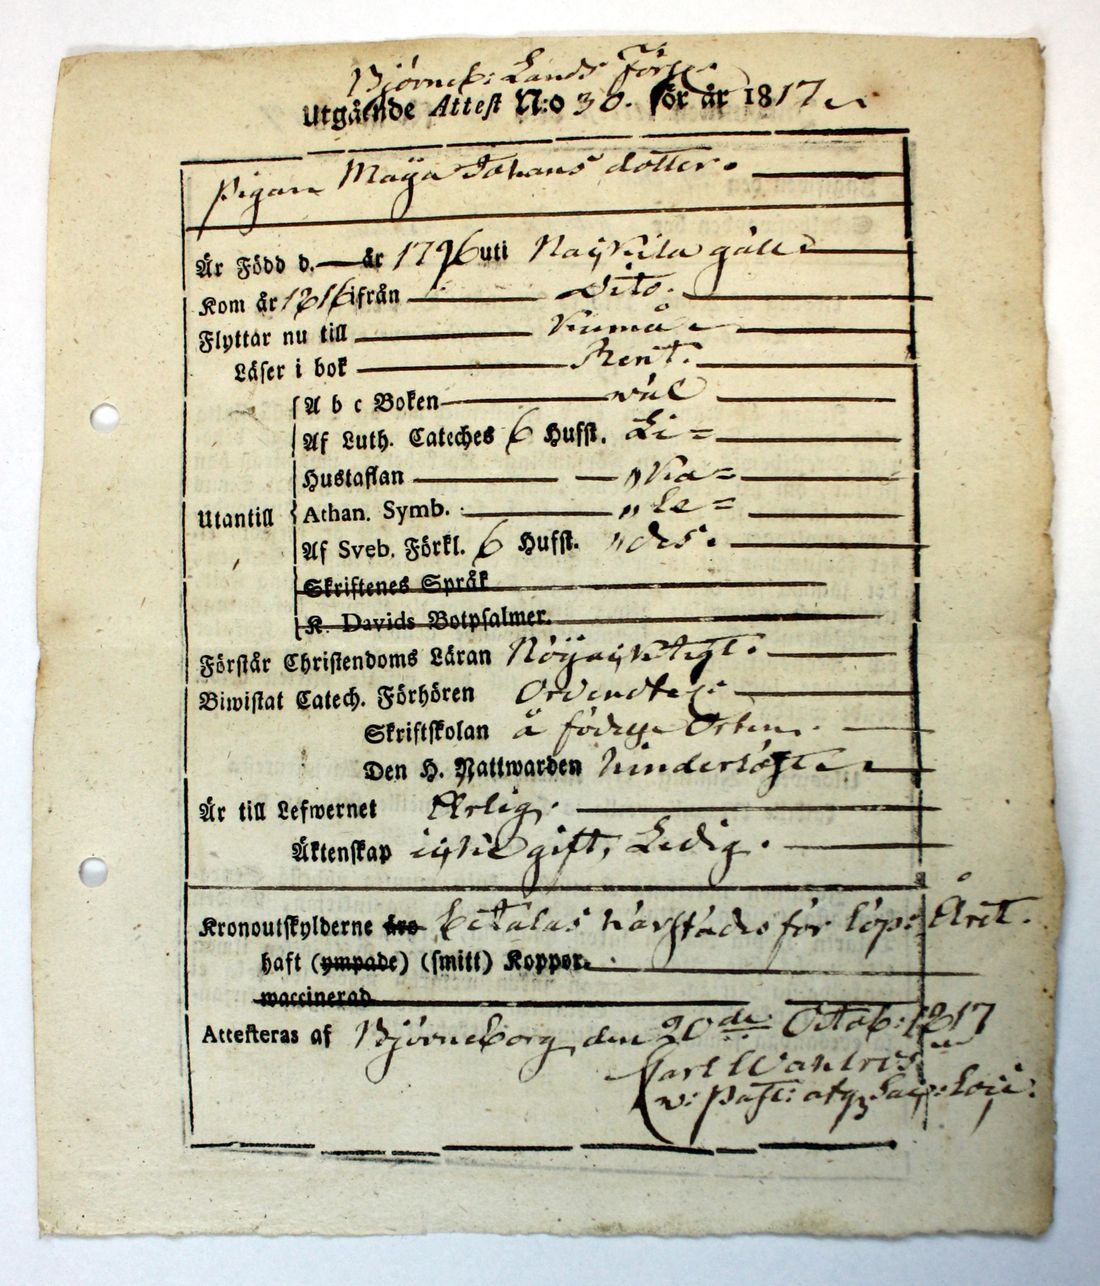 Björneb: Lands Förs:
Utgående Attest N:o 30. för år 1817
Pigan Maija Johans dotter.
Är Född d. — år 1796 uti Nackila gäll
Kom år 1816 ifrån Dito.
Flyttar nu till Kumå
Läser i bok Rent.
A b c Boken wäl
Af Luth. Cateches 6 Hufst. Li=
Hustaflan „ka=
Utantill Athan. Symb. „le=
Af Sveb. Förkl. 6 Hufst. „des.
Skriftenes Språk
K. Davids Botpsalmer.
Förstår Christendoms Läran Nöijaktigt.
Biwistat Catech. Förhören Ordentelig.
Skriftskolan å födelse Orten.
Den H. Nattwarden hindersögt
Är till Lefwernet Ärlig.
Äktenskap icke gift, Ledig.
Kronoutskylderne äro betalas härstädes för löp: Året.
haft (ympade) (smitt) Koppor.
waccinerad
Attesteras af Björneborg den 20de Octob: 1817
Carl
w: Past: